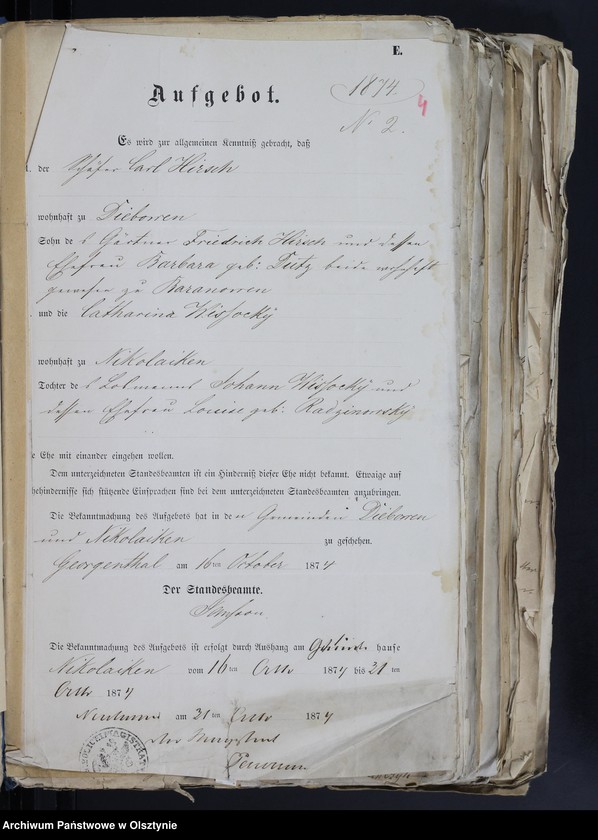 E.
Aufgebot.
1874.
4
No 2.
Es wird zur allgemeinen Kenntniß gebracht, daß
1. der Schäfer Carl Hirsch
wohnhaft zu Dieborren
Sohn des Gärtner Friedrich Hirsch und dessen
Ehefrau Barbara geb: Tutz beide wohnhaft
gewesen zu Baranowen
und die Catharina Wissocky
wohnhaft zu Nikolaiken
Tochter des Johann Wissocky und
dessen Ehefrau Louise geb: Radzinowsky
e Ehe mit einander eingehen wollen.
Dem unterzeichneten Standesbeamten ist ein Hinderniß dieser Ehe nicht bekannt. Etwaige auf
hehindernisse sich stützende Einsprachen sind bei dem unterzeichneten Standesbeamten anzubringen.
Die Bekanntmachung des Aufgebots hat in den Gemeinden Dieborren
und Nikolaiken zu geschehen.
Georgenthal am 16ten October 1874
Der Standesbeamte.
Die Bekanntmachung des Aufgebots ist erfolgt durch Aushang am hause
Nikolaiken vom 16ten Octbr 1874 bis 31ten
Octbr 1874
am 31ten Octbr 1874
Der Magistrat
Archiwum Państwowe w Olsztynie